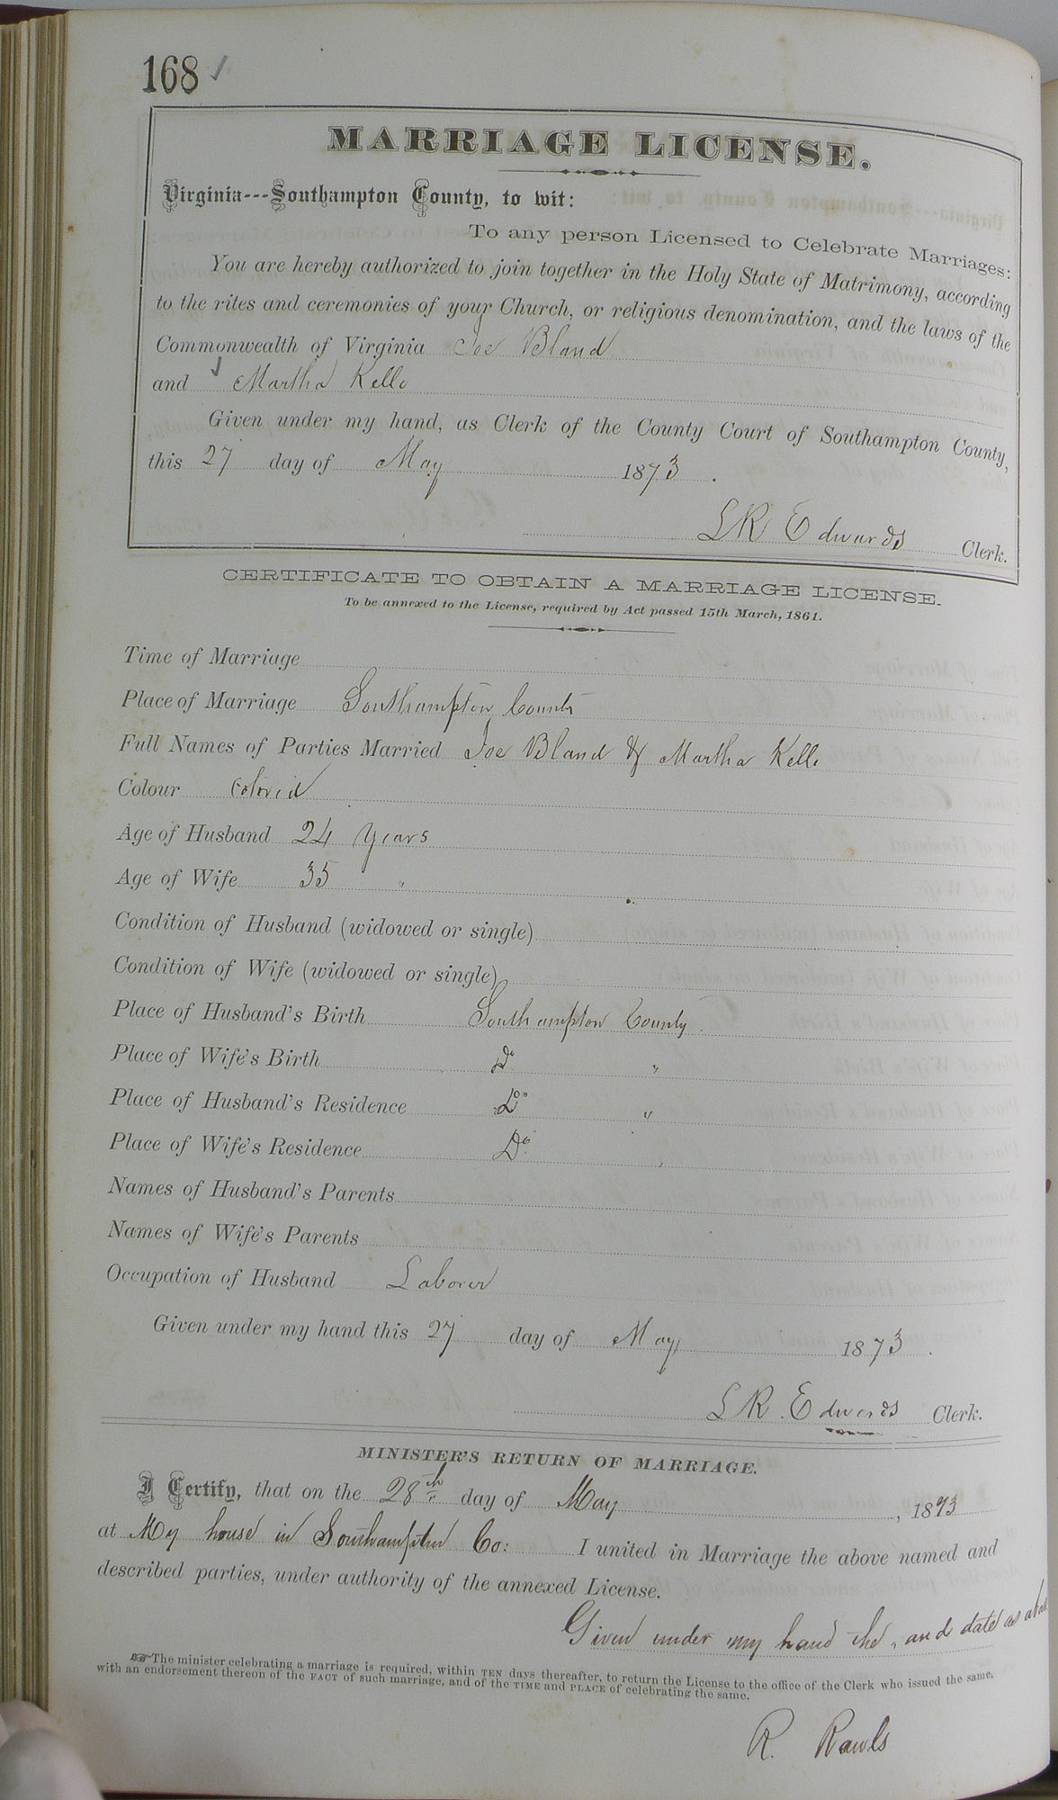 168 ✓
MARRIAGE LICENSE.
Virginia---Southampton County, to wit:
To any person Licensed to Celebrate Marriages:
You are hereby authorized to join together in the Holy State of Matrimony, according
to the rites and ceremonies of your Church, or religious denomination, and the laws of the
Commonwealth of Virginia Joe Bland
and Martha Kello
Given under my hand, as Clerk of the County Court of Southampton County,
this 27 day of May 1873.
LR Edwards Clerk.
CERTIFICATE TO OBTAIN A MARRIAGE LICENSE.
To be annexed to the License, required by Act passed 15th March, 1861.
Time of Marriage
Place of Marriage Southampton County
Full Names of Parties Married Joe Bland & Martha Kello
Colour Colored
Age of Husband 24 Years
Age of Wife 35 "
Condition of Husband (widowed or single)
Condition of Wife (widowed or single)
Place of Husband's Birth Southampton County
Place of Wife's Birth Do "
Place of Husband's Residence Do "
Place of Wife's Residence Do
Names of Husband's Parents
Names of Wife's Parents
Occupation of Husband Laborer
Given under my hand this 27 day of May 1873.
LR Edwards Clerk.
MINISTER'S RETURN OF MARRIAGE.
I Certify, that on the 28th day of May, 1873
at My house in Southampton Co: I united in Marriage the above named and
described parties, under authority of the annexed License.
Given under my hand the, and date as above
The minister celebrating a marriage is required, within TEN days thereafter, to return the License to the office of the Clerk who issued the same,
with an endorsement thereon of the FACT of such marriage, and of the TIME and PLACE of celebrating the same.
R. Rawls